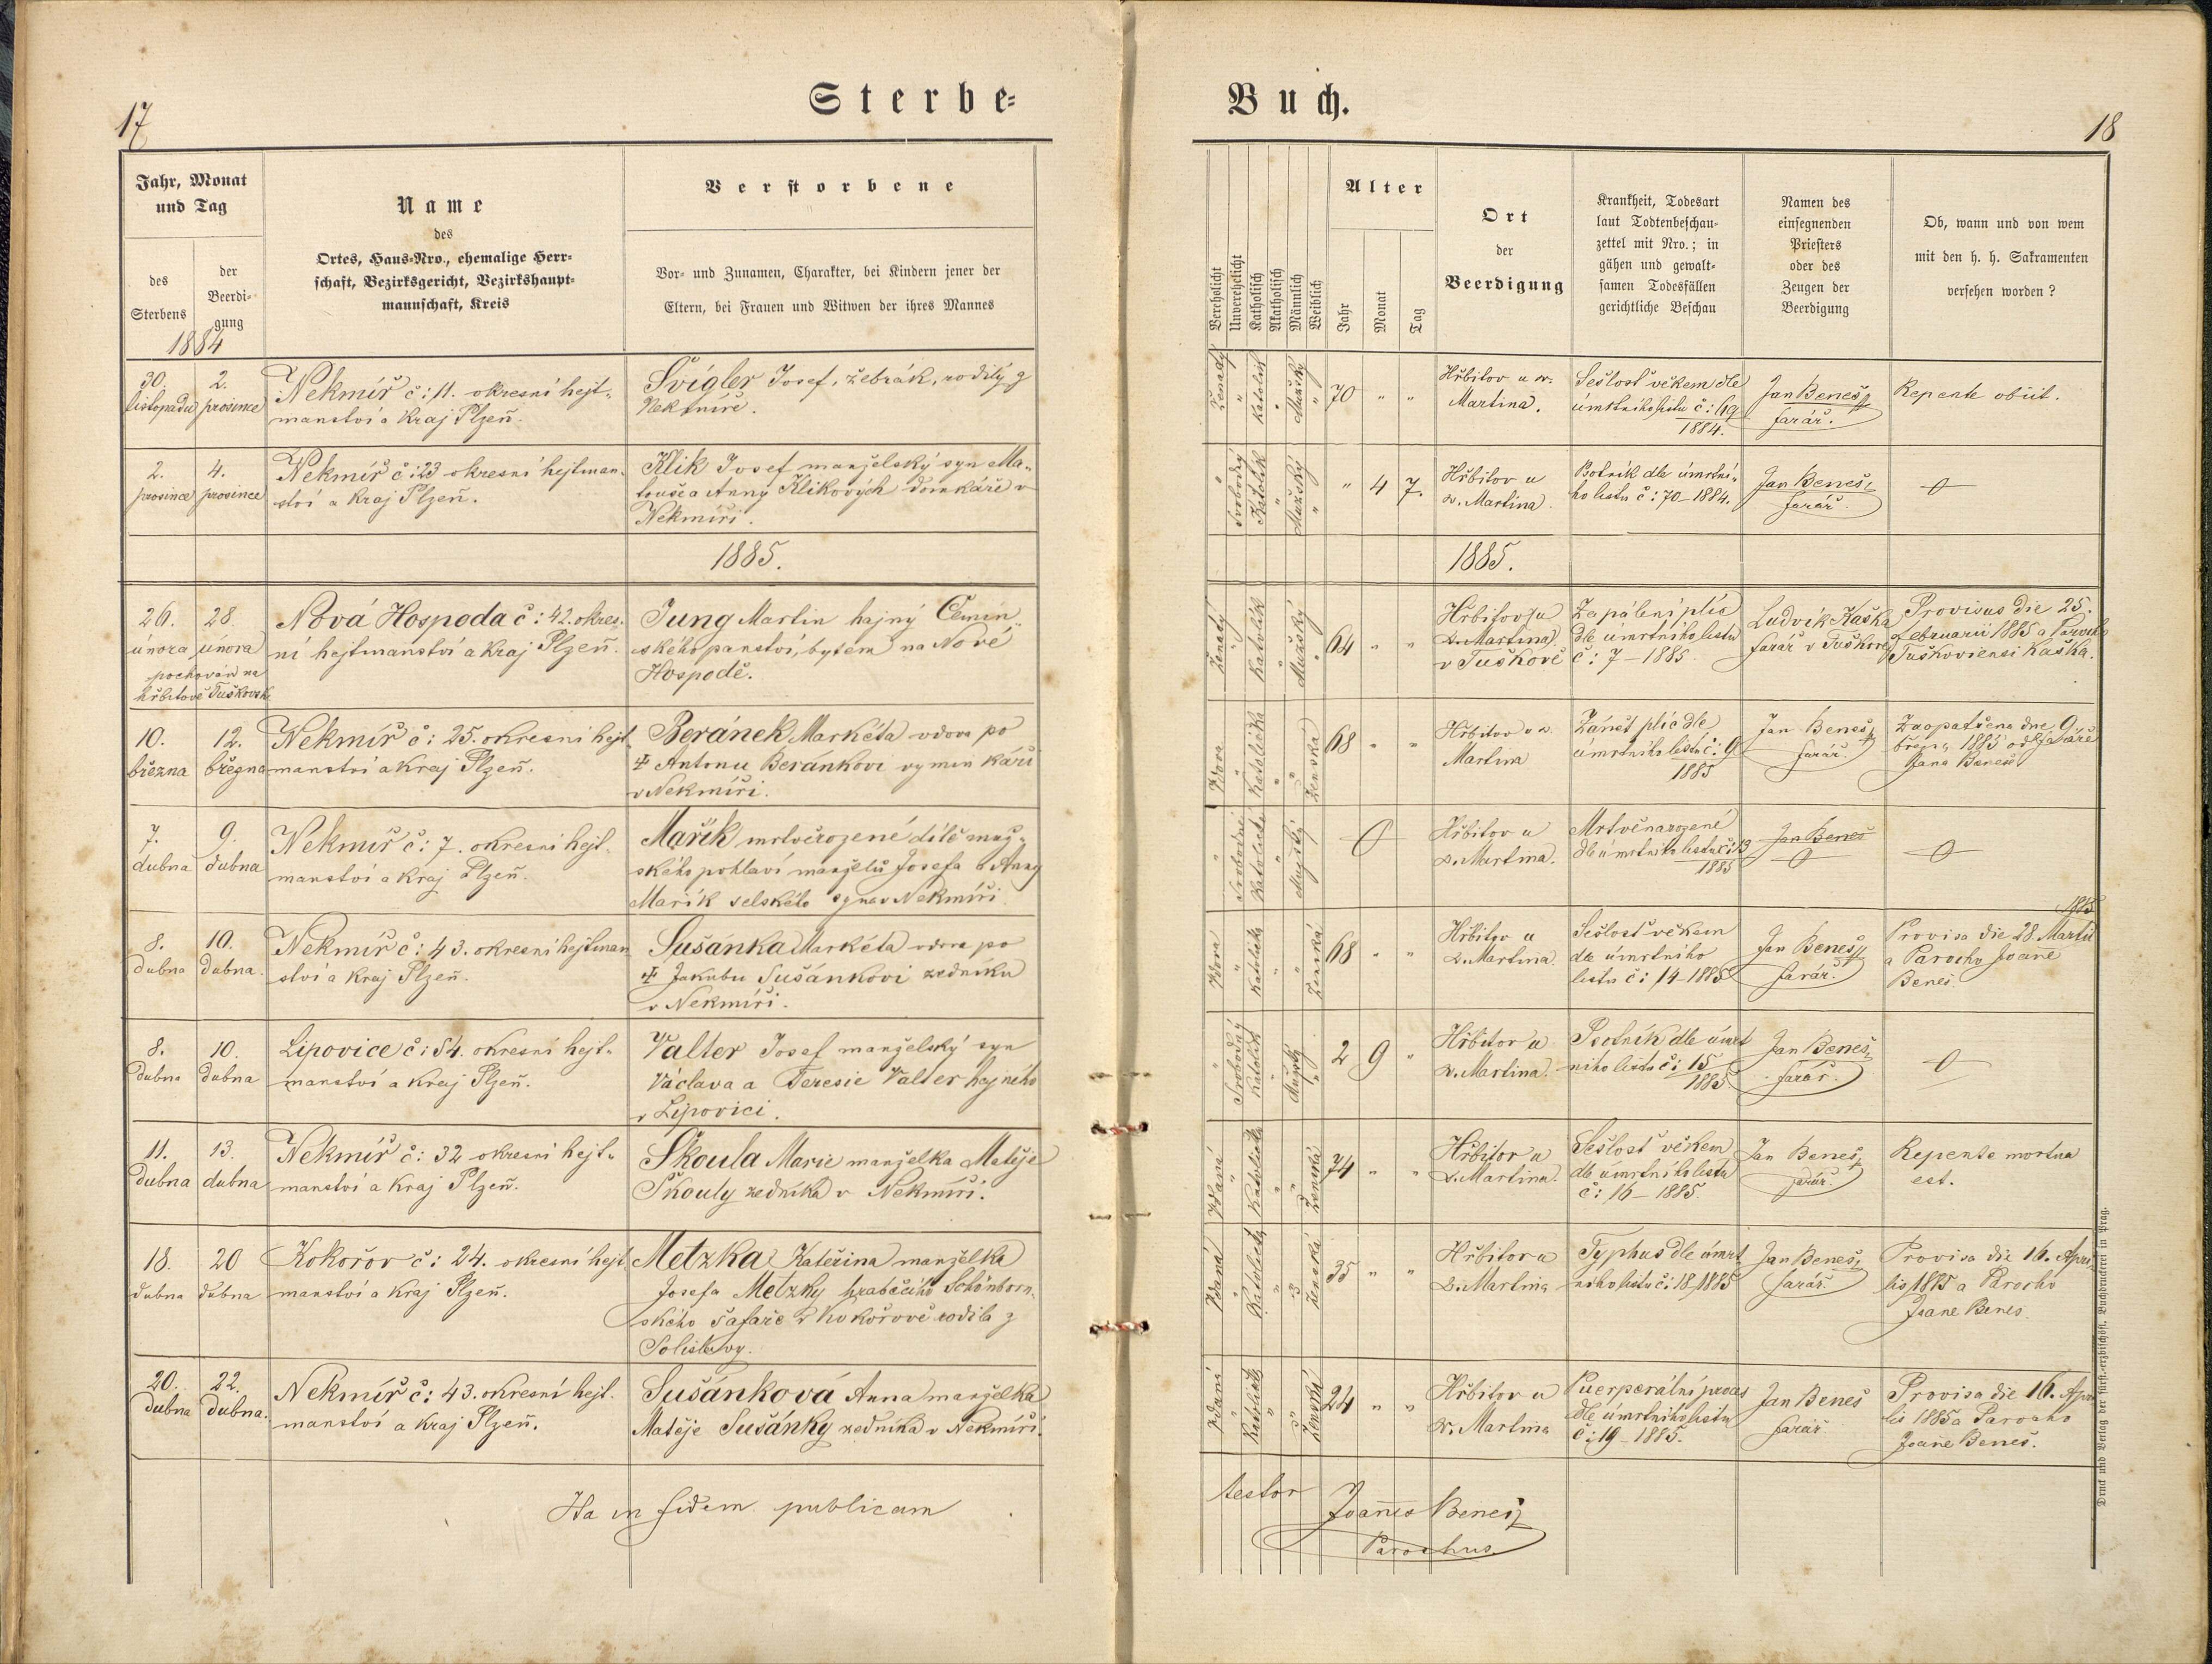 17
Sterbe=
Jahr, Monat
und Tag
des
Sterbens
der
Beerdi=
gung
1884
Name
des
Ortes, Haus=Nro., ehemalige Herr=
schaft, Bezirksgericht, Bezirkshaupt=
mannschaft, Kreis
Verstorbene
Vor= und Zunamen, Charakter, bei Kindern jener der
Eltern, bei Frauen und Witwen der ihres Mannes
30.
listopadu
2.
prosince
Nekmíř č: 11. okresní hejt-
manství a Kraj Plzeň.
Švígler Josef, žebrák, rodilý z
Nekmíře.
2.
prosince
4.
prosince
Nekmíř č: 23 okresní hejtman-
ství a Kraj Plzeň.
Klik Josef manželský syn Ma-
touše a Anny Klikových domkáře v
Nekmíři.
1885.
26.
února
28.
února
pochován na
hřbitově Tuškovsk.
Nová Hospoda č: 42. okres-
ní hejtmanství a Kraj Plzeň.
Jung Martin hajný Čemín-
ského panství, bytem na Nové
Hospodě.
10.
března
12.
března
Nekmíř č: 25. okresní hejt-
manství a Kraj Plzeň.
Beránek Markéta vdova po
☩ Antonu Beránkovi vyměnkáři
v Nekmíři.
7.
dubna
9.
dubna
Nekmíř č: 7. okresní hejt-
manství a Kraj Plzeň.
Mařík mrtvěrozené dítě muž-
ského pohlaví manželů Josefa a Anny
Mařík selského syna v Nekmíři.
8.
dubna
10.
dubna.
Nekmíř č: 43. okresní hejtman
ství a Kraj Plzeň.
Sušánka Markéta vdova po
☩ Jakubu Sušánkovi zedníku
v Nekmíři.
8.
dubna
10.
dubna
Lipovice č: 54. okresní hejt-
manství a Kraj Plzeň.
Valter Josef manželský syn
Václava a Teresie Valter hajného
v Lipovici.
11.
dubna
13.
dubna
Nekmíř č: 32 okresní hejt-
manství a Kraj Plzeň.
Škoula Marie manželka Matěje
Škouly zedníka v Nekmíři.
18.
dubna
20
dubna
Kokořov č: 24. okresní hejt
manství a Kraj Plzeň.
Metzka Kateřina manželka
Josefa Metzky hraběcího Schönborn-
ského šafáře v Kokořově rodilá z
20.
dubna
22.
dubna.
Nekmíř č: 43. okresní hejt.
manství a Kraj Plzeň.
Sušánková Anna manželka
Matěje Sušánky zedníka v Nekmíři.
Ita in fidem publicam
Buch.
18
Verehelicht
Unverehelicht
Katholisch
Akatholisch
Männlich
Weiblich
Alter
Jahr
Monat
Tag
Ort
der
Beerdigung
Krankheit, Todesart
laut Todtenbeschau=
zettel mit Nro.; in
gähen und gewalt=
samen Todesfällen
gerichtliche Beschau
Namen des
einsegnenden
Priesters
oder des
Zeugen der
Beerdigung
Ob, wann und von wem
mit den h. h. Sakramenten
versehen worden?
Ženatý " Katolík " Mužský " 70 " "
Hřbitov u sv.
Martina.
Sešlost věkem dle
úmrtního listu č: 69
1884.
Jan Beneš,
farář.
Repente obiit.
" Svobodný Katolík " Mužský " " 4 7.
Hřbitov u
sv. Martina.
Psotník dle úmrtní-
ho listu č: 70-1884.
Jan Beneš,
farář.
1885.
Ženatý " Katolík " Mužský " 64 " "
Hřbitov (u
sv. Martina)
v Tuškově
Zapálení plic
dle úmrtního listu
č: 7-1885.
Ludvík Kaska
farář v Tuškově
Provisus die 25.
februarii 1885 a Parocho
Tuškoviensi Kaska.
Vdova " Katolička " " Ženská 68 " "
Hřbitov u sv.
Martina
Zánět plic dle
úmrtního listu č: 9
1885
Jan Beneš,
farář.
Zaopatřena dne 9.
března 1885 od faráře
Jana Beneš
" Svobodné Katolické " Mužský "
Hřbitov u
sv. Martina.
Mrtvěnarozené
dle úmrtního listu č: 13
1885
Jan Beneš
Vdova " Katolická " " Ženská 68 " "
Hřbitov u
sv. Martina
Sešlost věkem
dle úmrtního
listu č: 14-1885
Jan Beneš,
farář.
1885
Provisa die 28 Martii
a Parocho Joane
Beneš.
" Svobodný Katolík " Mužský " 2 9 "
Hřbitov u
sv. Martina.
Psotník dle úmrt
ního listu č: 15
1885
Jan Beneš,
farář.
Vdaná " Katolická " " Ženská 74 " "
Hřbitov u
sv. Martina.
Sešlost věkem
dle úmrtního listu
č: 16-1885.
Jan Beneš,
farář.
Repente mortua
est.
Vdaná " Katolická " " Ženská 35 " "
Hřbitov u
sv. Martina
Typhus dle úmrt
ního listu č: 18-1885
Jan Beneš,
farář.
Provisa die 16. Apri-
lis 1885 a Parocho
Joane Beneš.
Vdaná " Katolická " " Ženská 24 " "
Hřbitov u
sv. Martina
Puerperální proces
dle úmrtního listu
č: 19-1885.
Jan Beneš
farář
Provisa die 16. Apri
lis 1885 a Parocho
Joane Beneš.
testor
Joannes Beneš,
Parochus.
Druck und Verlag der fürst.=erzbischöfl. Buchdruckerei in Prag.